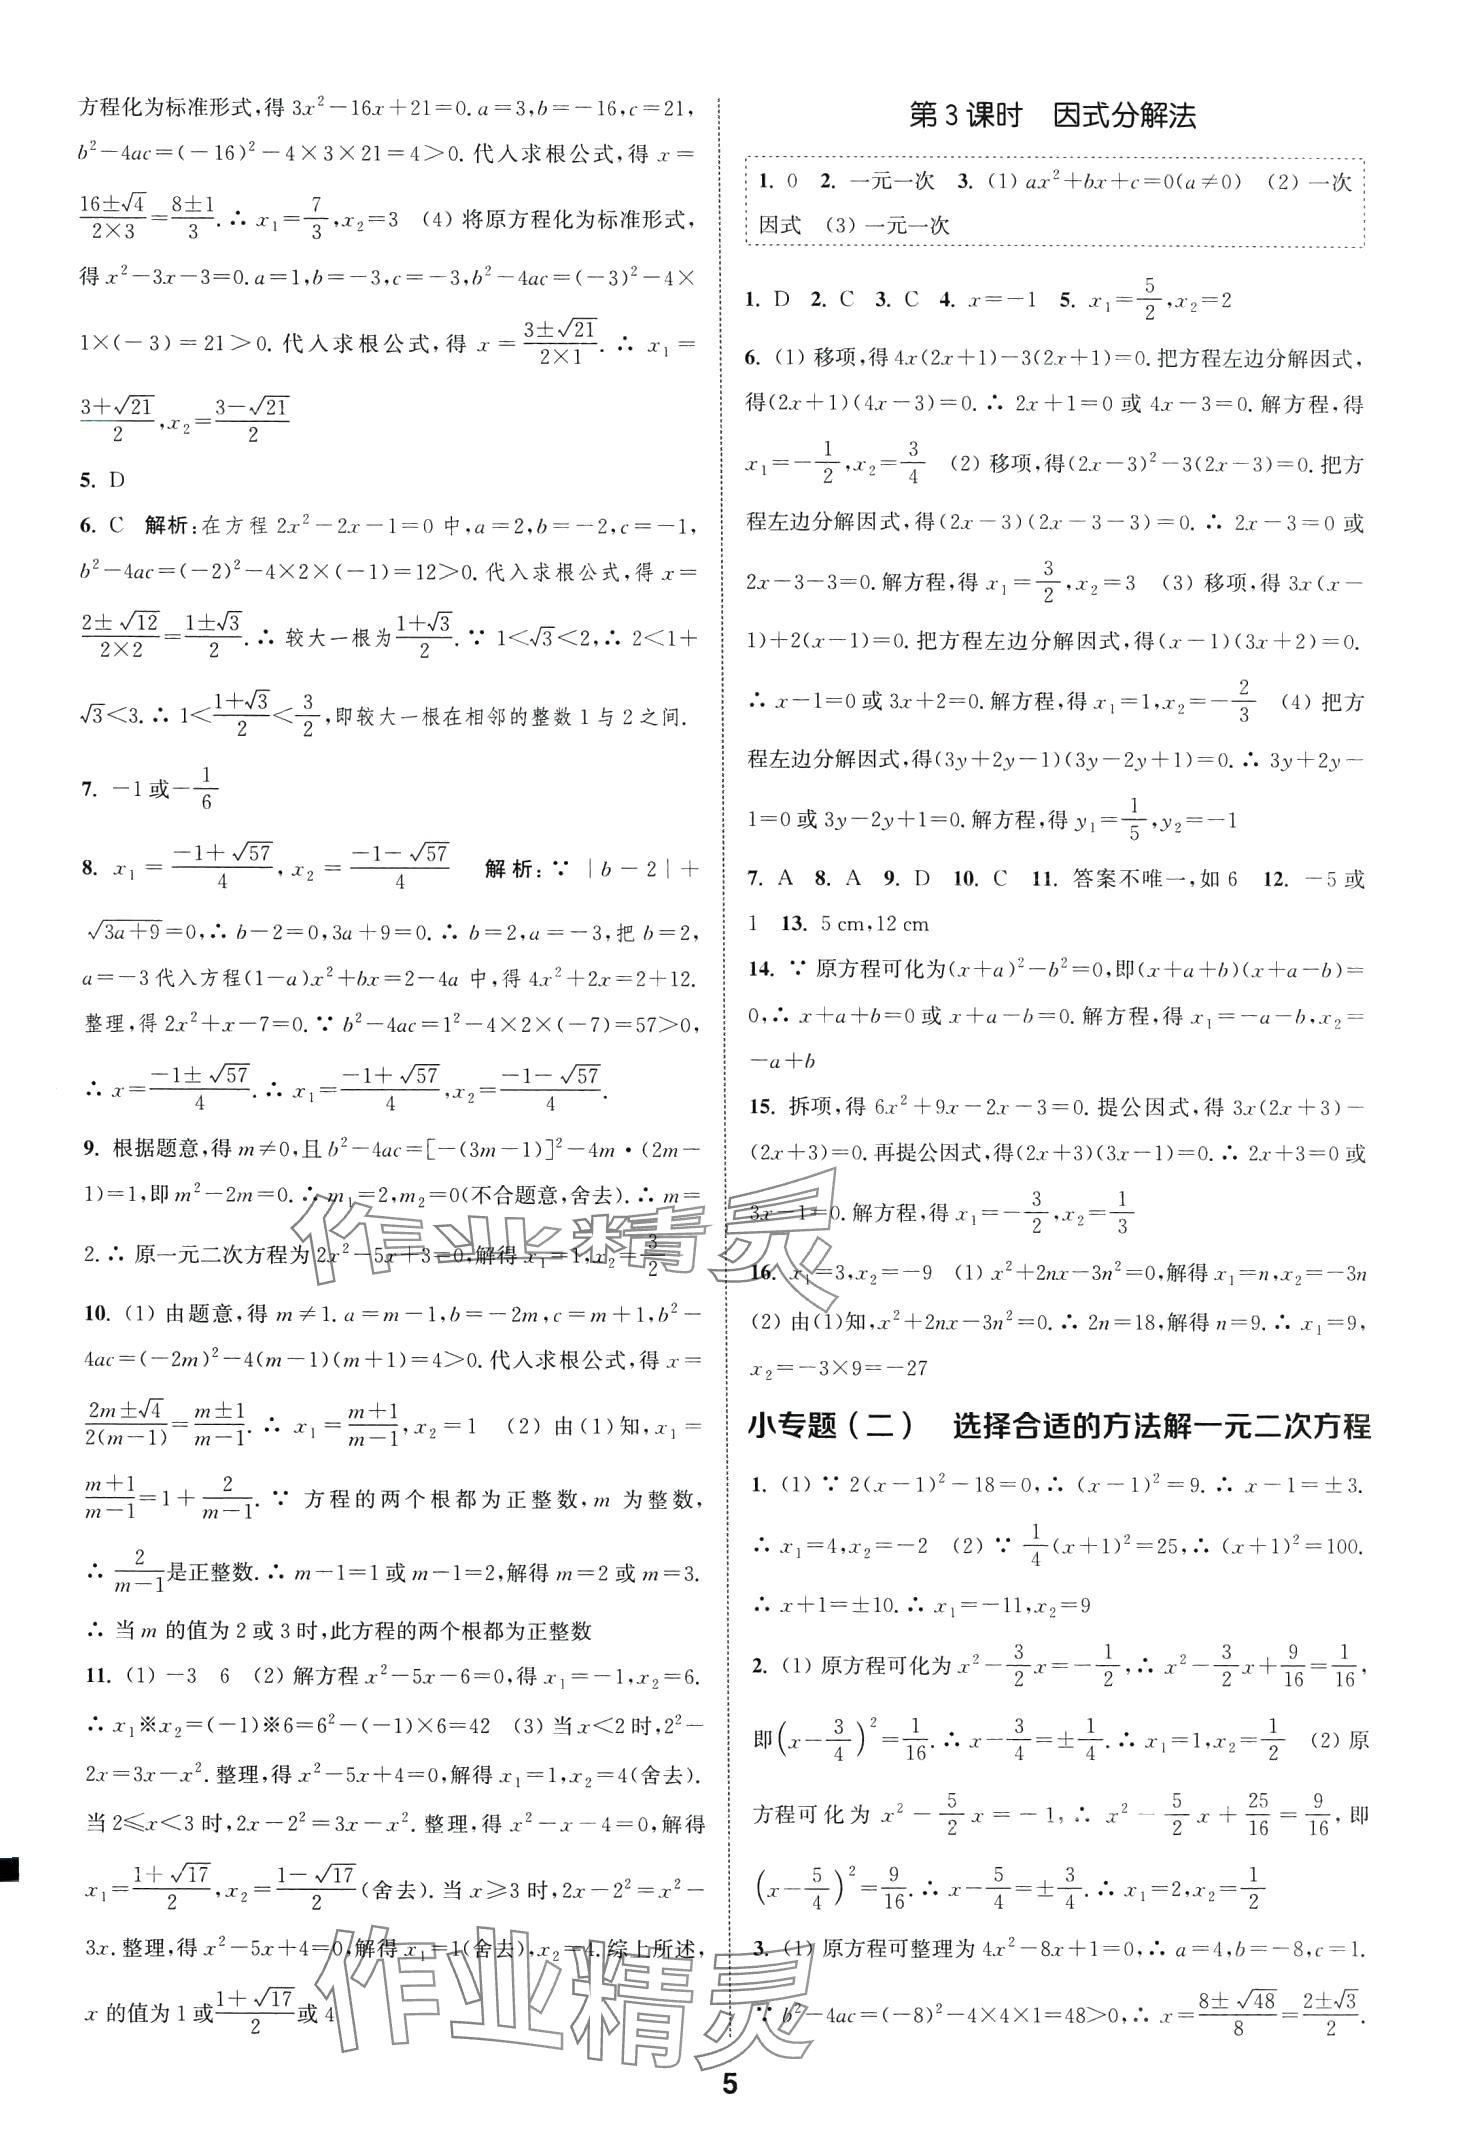 方程化为标准形式,得 3x²-16x+21=0. a=3,b=-16,c=21,
b²-4ac=(-16)²-4×3×21=4>0. 代入求根公式,得 x=
(16±√4)/(2×3)=(8±1)/3. ∴ x₁=7/3,x₂=3 (4) 将原方程化为标准形式,
得 x²-3x-3=0. a=1,b=-3,c=-3,b²-4ac=(-3)²-4×
1×(-3)=21>0. 代入求根公式,得 x=(3±√21)/(2×1). ∴ x₁=
(3+√21)/2,x₂=(3-√21)/2
5. D
6. C 解析:在方程 2x²-2x-1=0 中,a=2,b=-2,c=-1,
b²-4ac=(-2)²-4×2×(-1)=12>0. 代入求根公式,得 x=
(2±√12)/(2×2)=(1±√3)/2. ∴ 较大一根为(1+√3)/2. ∵ 1<√3<2,∴ 2<1+
√3<3. ∴ 1<(1+√3)/2<3/2,即较大一根在相邻的整数 1 与 2 之间.
7. -1 或-1/6
8. x₁=(-1+√57)/4,x₂=(-1-√57)/4 解析:∵ |b-2|+
√(3a+9)=0,∴ b-2=0,3a+9=0. ∴ b=2,a=-3,把 b=2,
a=-3 代入方程(1-a)x²+bx=2-4a 中,得 4x²+2x=2+12.
整理,得 2x²+x-7=0. ∵ b²-4ac=1²-4×2×(-7)=57>0,
∴ x=(-1±√57)/4. ∴ x₁=(-1+√57)/4,x₂=(-1-√57)/4.
9. 根据题意,得 m≠0,且 b²-4ac=[-(3m-1)]²-4m·(2m-
1)=1,即 m²-2m=0. ∴ m₁=2,m₂=0(不合题意,舍去). ∴ m=
2. ∴ 原一元二次方程为 2x²-5x+3=0,解得 x₁=1,x₂=3/2
10. (1) 由题意,得 m≠1. a=m-1,b=-2m,c=m+1,b²-
4ac=(-2m)²-4(m-1)(m+1)=4>0. 代入求根公式,得 x=
(2m±√4)/(2(m-1))=(m±1)/(m-1). ∴ x₁=(m+1)/(m-1),x₂=1 (2) 由(1)知,x₁=
(m+1)/(m-1)=1+2/(m-1). ∵ 方程的两个根都为正整数,m 为整数,
∴ 2/(m-1)是正整数. ∴ m-1=1 或 m-1=2,解得 m=2 或 m=3.
∴ 当 m 的值为 2 或 3 时,此方程的两个根都为正整数
11. (1) -3 6 (2) 解方程 x²-5x-6=0,得 x₁=-1,x₂=6.
∴ x₁※x₂=(-1)※6=6²-(-1)×6=42 (3) 当 x<2 时,2²-
2x=3x-x². 整理,得 x²-5x+4=0,解得 x₁=1,x₂=4(舍去).
当 2≤x<3 时,2x-2²=3x-x². 整理,得 x²-x-4=0,解得
x₁=(1+√17)/2,x₂=(1-√17)/2(舍去). 当 x≥3 时,2x-2²=x²-
3x. 整理,得 x²-5x+4=0,解得 x₁=1(舍去),x₂=4. 综上所述,
x 的值为 1 或(1+√17)/2或 4
第 3 课时 因式分解法
1. 0 2. 一元一次 3. (1) ax²+bx+c=0(a≠0) (2) 一次
因式 (3) 一元一次
1. D 2. C 3. C 4. x=-1 5. x₁=5/2,x₂=2
6. (1) 移项,得 4x(2x+1)-3(2x+1)=0. 把方程左边分解因式,
得(2x+1)(4x-3)=0. ∴ 2x+1=0 或 4x-3=0. 解方程,得
x₁=-1/2,x₂=3/4 (2) 移项,得(2x-3)²-3(2x-3)=0. 把方
程左边分解因式,得(2x-3)(2x-3-3)=0. ∴ 2x-3=0 或
2x-3-3=0. 解方程,得 x₁=3/2,x₂=3 (3) 移项,得 3x(x-
1)+2(x-1)=0. 把方程左边分解因式,得(x-1)(3x+2)=0.
∴ x-1=0 或 3x+2=0. 解方程,得 x₁=1,x₂=-2/3 (4) 把方
程左边分解因式,得(3y+2y-1)(3y-2y+1)=0. ∴ 3y+2y-
1=0 或 3y-2y+1=0. 解方程,得 y₁=1/5,y₂=-1
7. A 8. A 9. D 10. C 11. 答案不唯一,如 6 12. -5 或
1 13. 5 cm,12 cm
14. ∵ 原方程可化为(x+a)²-b²=0,即(x+a+b)(x+a-b)=
0,∴ x+a+b=0 或 x+a-b=0. 解方程,得 x₁=-a-b,x₂=
-a+b
15. 拆项,得 6x²+9x-2x-3=0. 提公因式,得 3x(2x+3)-
(2x+3)=0. 再提公因式,得(2x+3)(3x-1)=0. ∴ 2x+3=0 或
3x-1=0. 解方程,得 x₁=-3/2,x₂=1/3
16. x₁=3,x₂=-9 (1) x²+2nx-3n²=0,解得 x₁=n,x₂=-3n
(2) 由(1)知,x²+2nx-3n²=0. ∴ 2n=18,解得 n=9. ∴ x₁=9,
x₂=-3×9=-27
小专题(二) 选择合适的方法解一元二次方程
1. (1) ∵ 2(x-1)²-18=0,∴ (x-1)²=9. ∴ x-1=±3.
∴ x₁=4,x₂=-2 (2) ∵ 1/4(x+1)²=25,∴ (x+1)²=100.
∴ x+1=±10. ∴ x₁=-11,x₂=9
2. (1) 原方程可化为 x²-3/2x=-1/2,∴ x²-3/2x+9/16=1/16,
即(x-3/4)²=1/16. ∴ x-3/4=±1/4. ∴ x₁=1,x₂=1/2 (2) 原
方程可化为 x²-5/2x=-1,∴ x²-5/2x+25/16=9/16,即
(x-5/4)²=9/16. ∴ x-5/4=±3/4. ∴ x₁=2,x₂=1/2
3. (1) 原方程可整理为 4x²-8x+1=0,∴ a=4,b=-8,c=1.
∵ b²-4ac=(-8)²-4×4×1=48>0,∴ x=(8±√48)/8=(2±√3)/2.
作业精灵
作业精灵
5